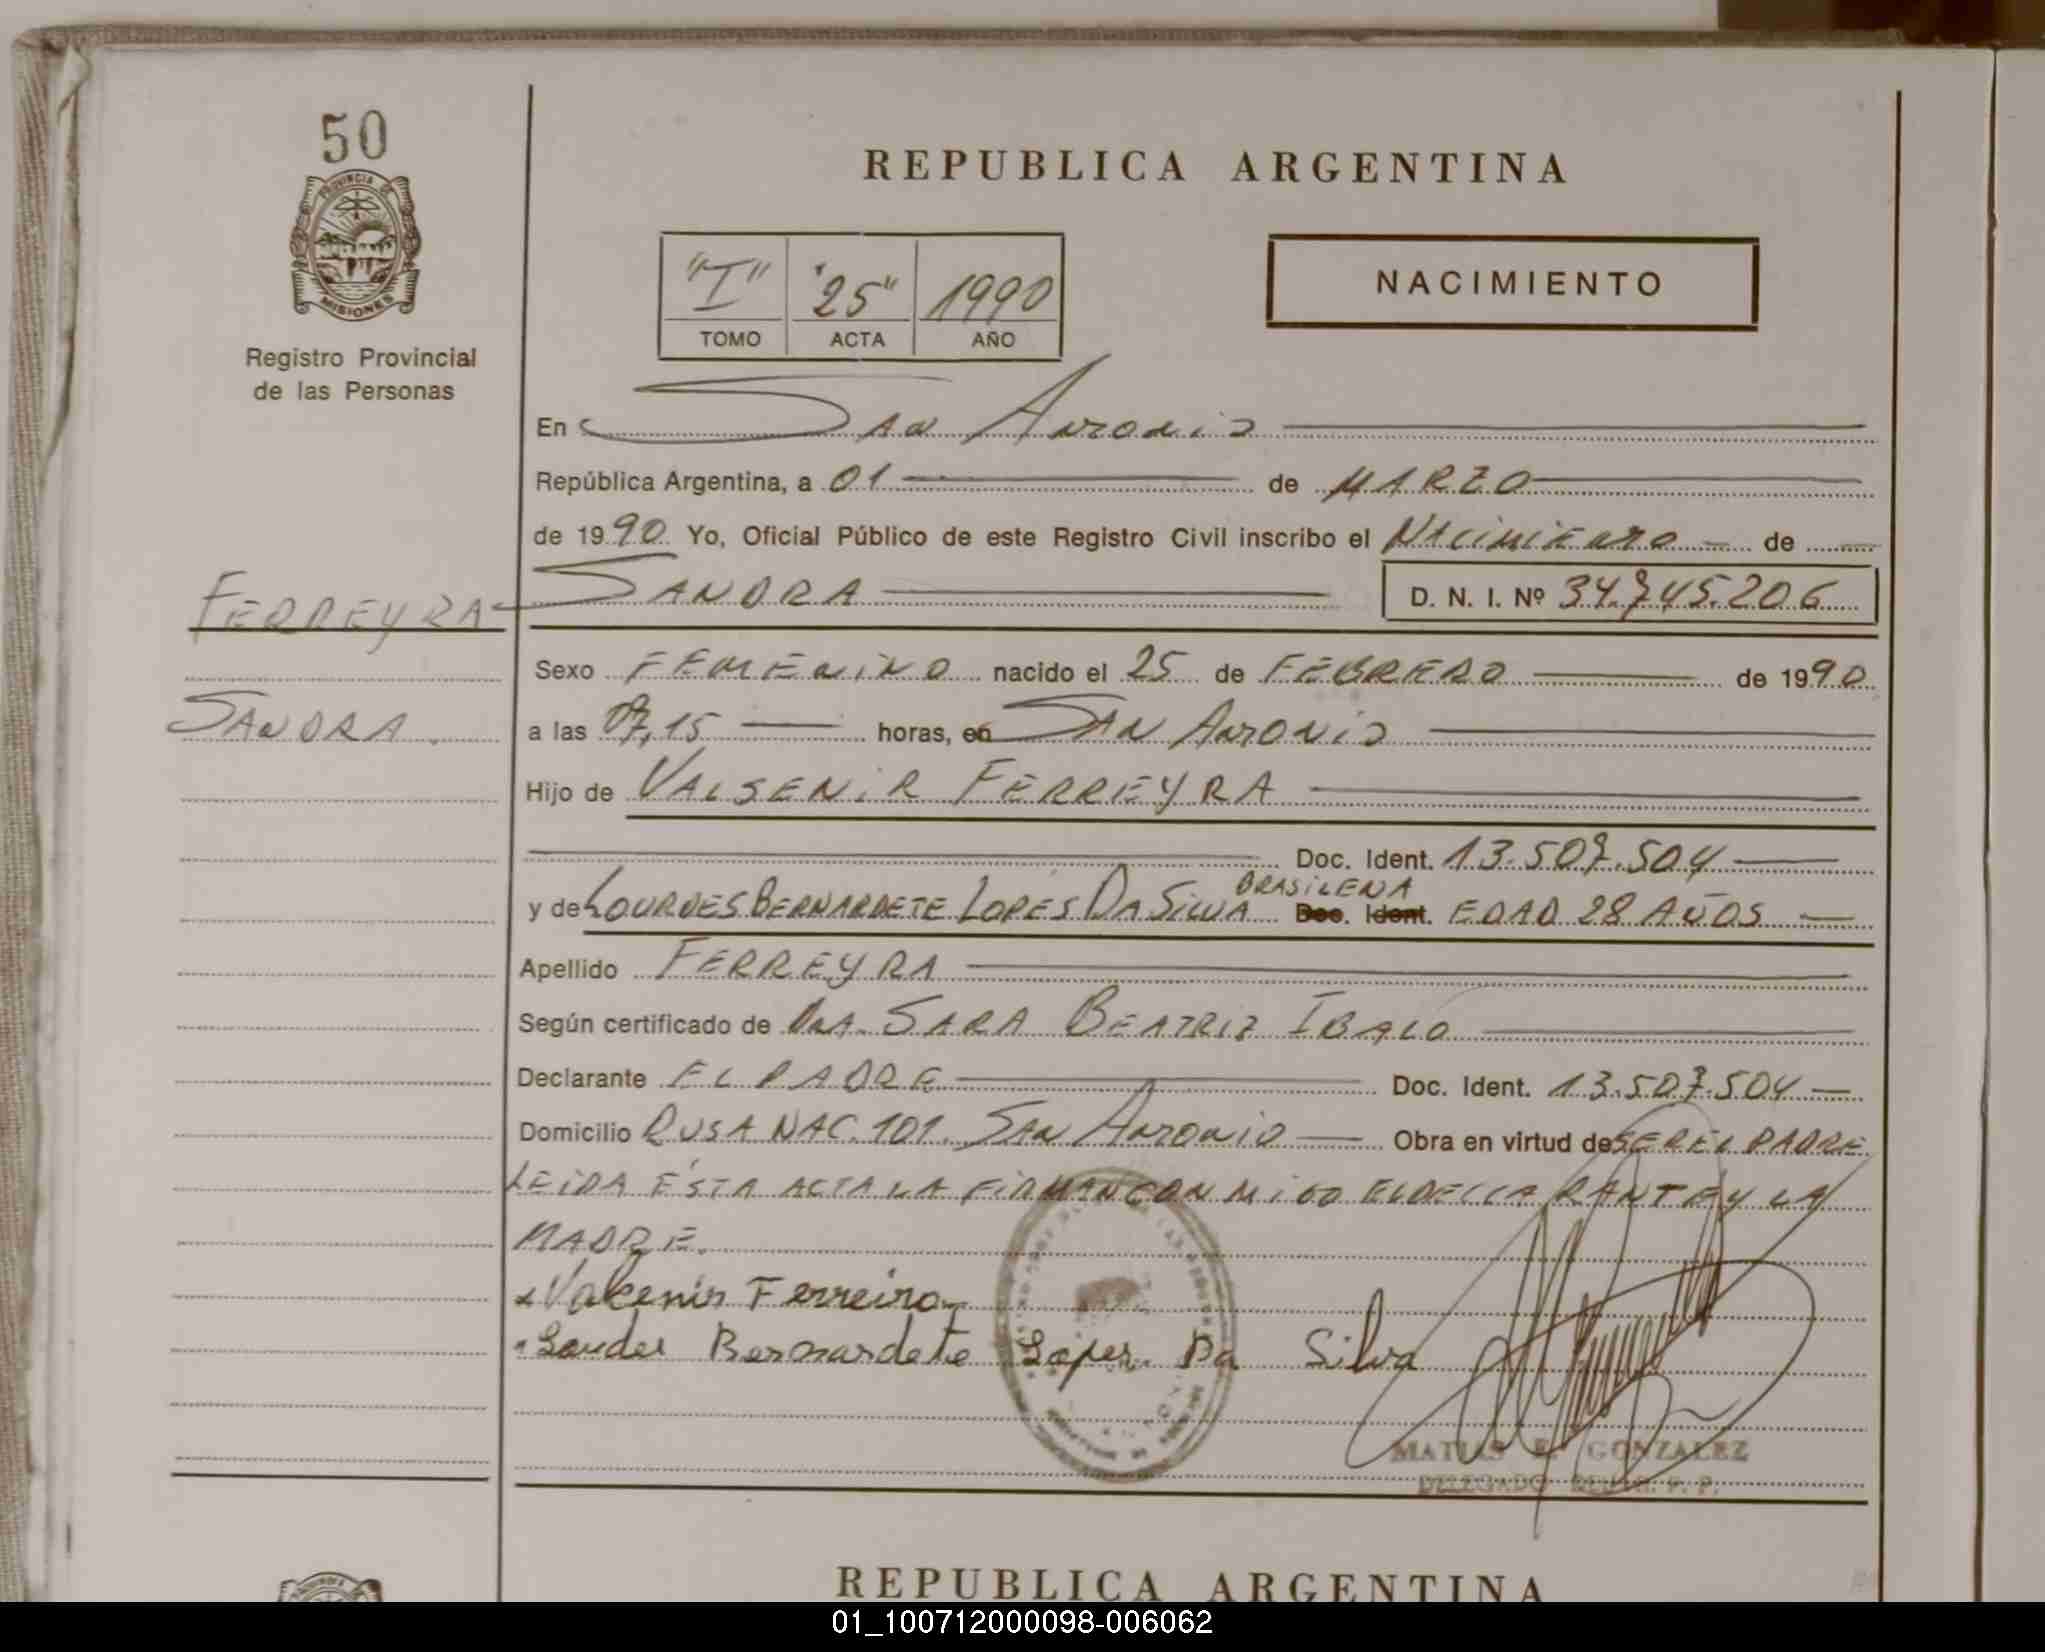 50
PROVINCIA DE
MISIONES
Registro Provincial
de las Personas
REPUBLICA ARGENTINA
"I" "25" 1990
TOMO ACTA AÑO
NACIMIENTO
En San Antonio
República Argentina, a 01 de MARZO
de 1990 Yo, Oficial Público de este Registro Civil inscribo el Nacimiento de
FERREYRA SANDRA D. N. I. Nº 34.745.206
Sexo FEMENINO nacido el 25 de FEBRERO de 1990
SANDRA.
a las 07,15 horas, en SAN ANTONIO
Hijo de VALSENIR FERREYRA
Doc. Ident. 13.507.504
BRASILENA
y de LOURDES BERNARDETE LOPES DA SILVA Doc. Ident. EDAD 28 AÑOS
Apellido FERREYRA
Según certificado de DRA. SARA BEATRIZ IBALO
Declarante EL PADRE Doc. Ident. 13.507.504
Domicilio RUTA NAC. 101. SAN ANTONIO Obra en virtud de SER EL PADRE
LEIDA ÉSTA ACTA LA FIRMAN CON MIGO EL DECLARANTE Y LA
MADRE.
Valcenir Ferreira
Lourdes Bernardete Lopes Da Silva
MATIAS E. GONZALEZ
DELEGADO R. P. P.
REPUBLICA ARGENTINA
01_100712000098-006062